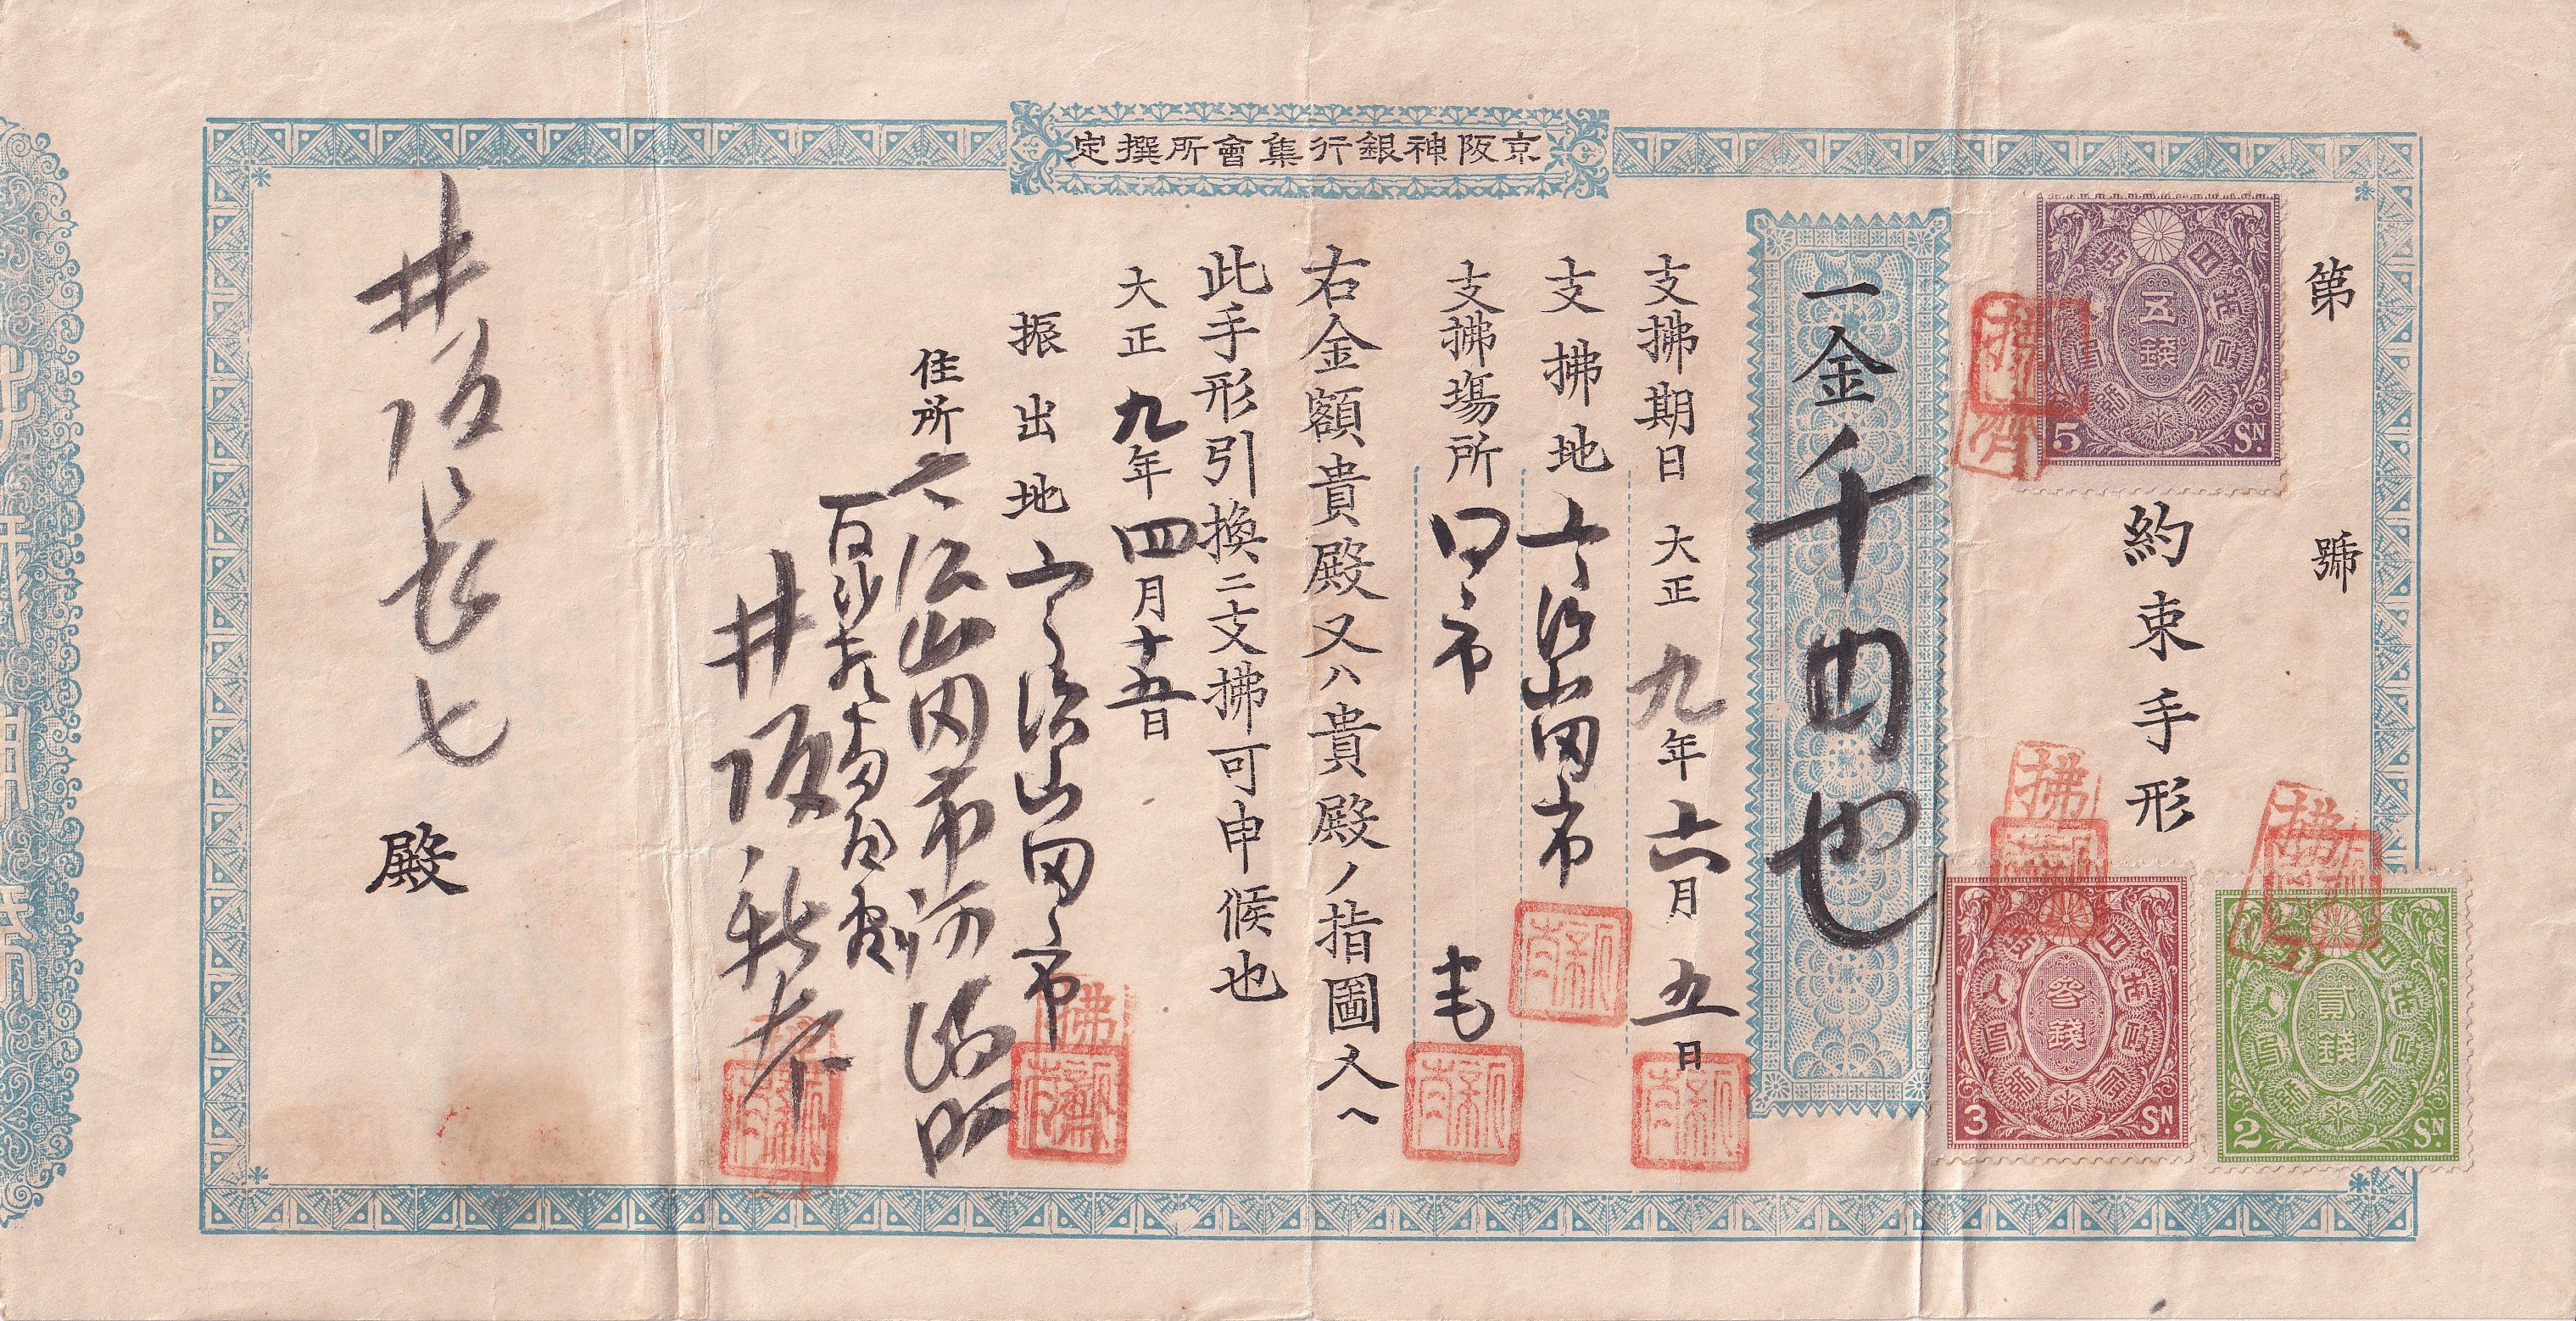 京阪神銀行集會所撰定
第 號
約束手形
五錢
5 SN.
參錢
3 SN.
貳錢
2 SN.
一金千円也
支拂期日 大正九年六月五日
支拂地 宇治山田市
支拂場所 同市
右金額貴殿又ハ貴殿ノ指圖人ヘ
此手形引換ニ支拂可申候也
大正九年四月十五日
振出地 宇治山田市
住所 宇治山田市
井阪
井阪長七殿